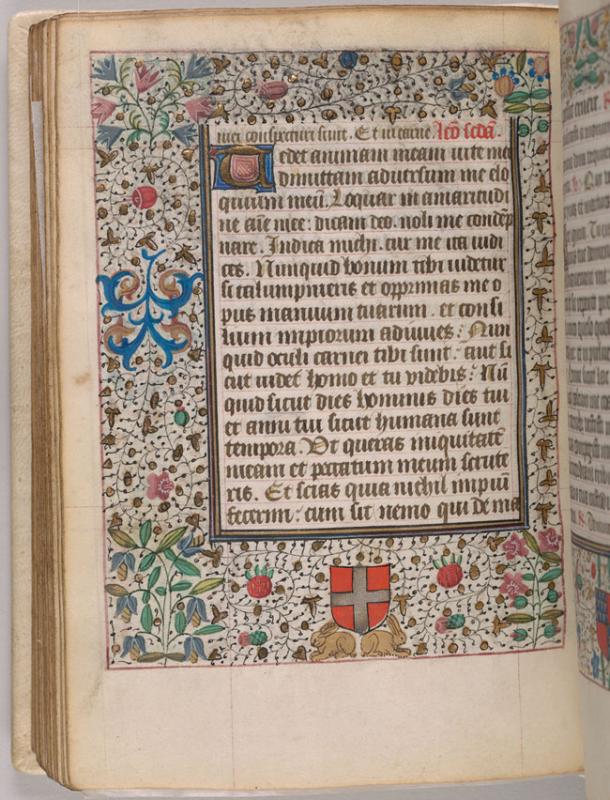 mei conspecturi sunt. Et in carne. Lcō scdā.
Tedet animam meam vite mee
Dimittam adversum me elo
quium meū. Loquar in amaritudi
ne aīe mee: dicam deo. noli me condēp
nare. Indica michi. cur me ita iudi
ces. Nunquid bonum tibi videtur
si calumpnieris et opprimas me o
pus manuum tuarum. et consi
lium impiorum adiuves: Nun
quid oculi carnei tibi sunt: aut si
cut videt homo et tu videbis: Nū
quid sicut dies hominis dies tui
et anni tui sicut humana sunt
tempora. Ut queras iniquitatē
meam et peccatum meum scrute
ris. Et scias quia nichil impiū
fecerim: cum sit nemo qui de ma